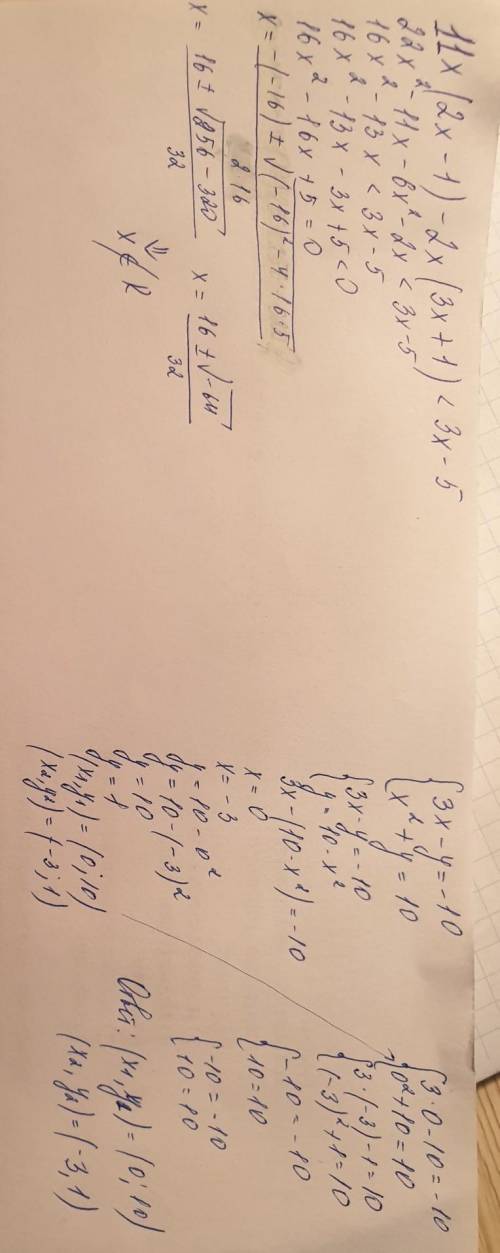 11x(2x-1)-2x(3x+1)<3x-5
22x²-11x-6x²-2x<3x-5
16x²-13x<3x-5
16x²-13x-3x+5<0
16x²-16x+5=0
x=(-(-16)±√((-16)²-4·16·5))/(2·16)
x=(16±√(256-320))/32 x=(16±√(-64))/32
⇓
x∉R
{3x-y=-10
x²+y=10
{3x-y=-10
y=10-x²
3x-(10-x²)=-10
x=0
x=-3
y=10-0²
y=10-(-3)²
y=10
y=1
(x₁,y₁)=(0;10)
(x₂,y₂)=(-3;1)
{3·0-10=-10
0²+10=10
{3·(-3)-1=10
(-3)²+1=10
{-10=-10
10=10
{-10=-10
10=10
Отвіт: (x₁,y₁)=(0;10)
(x₂,y₂)=(-3,1)